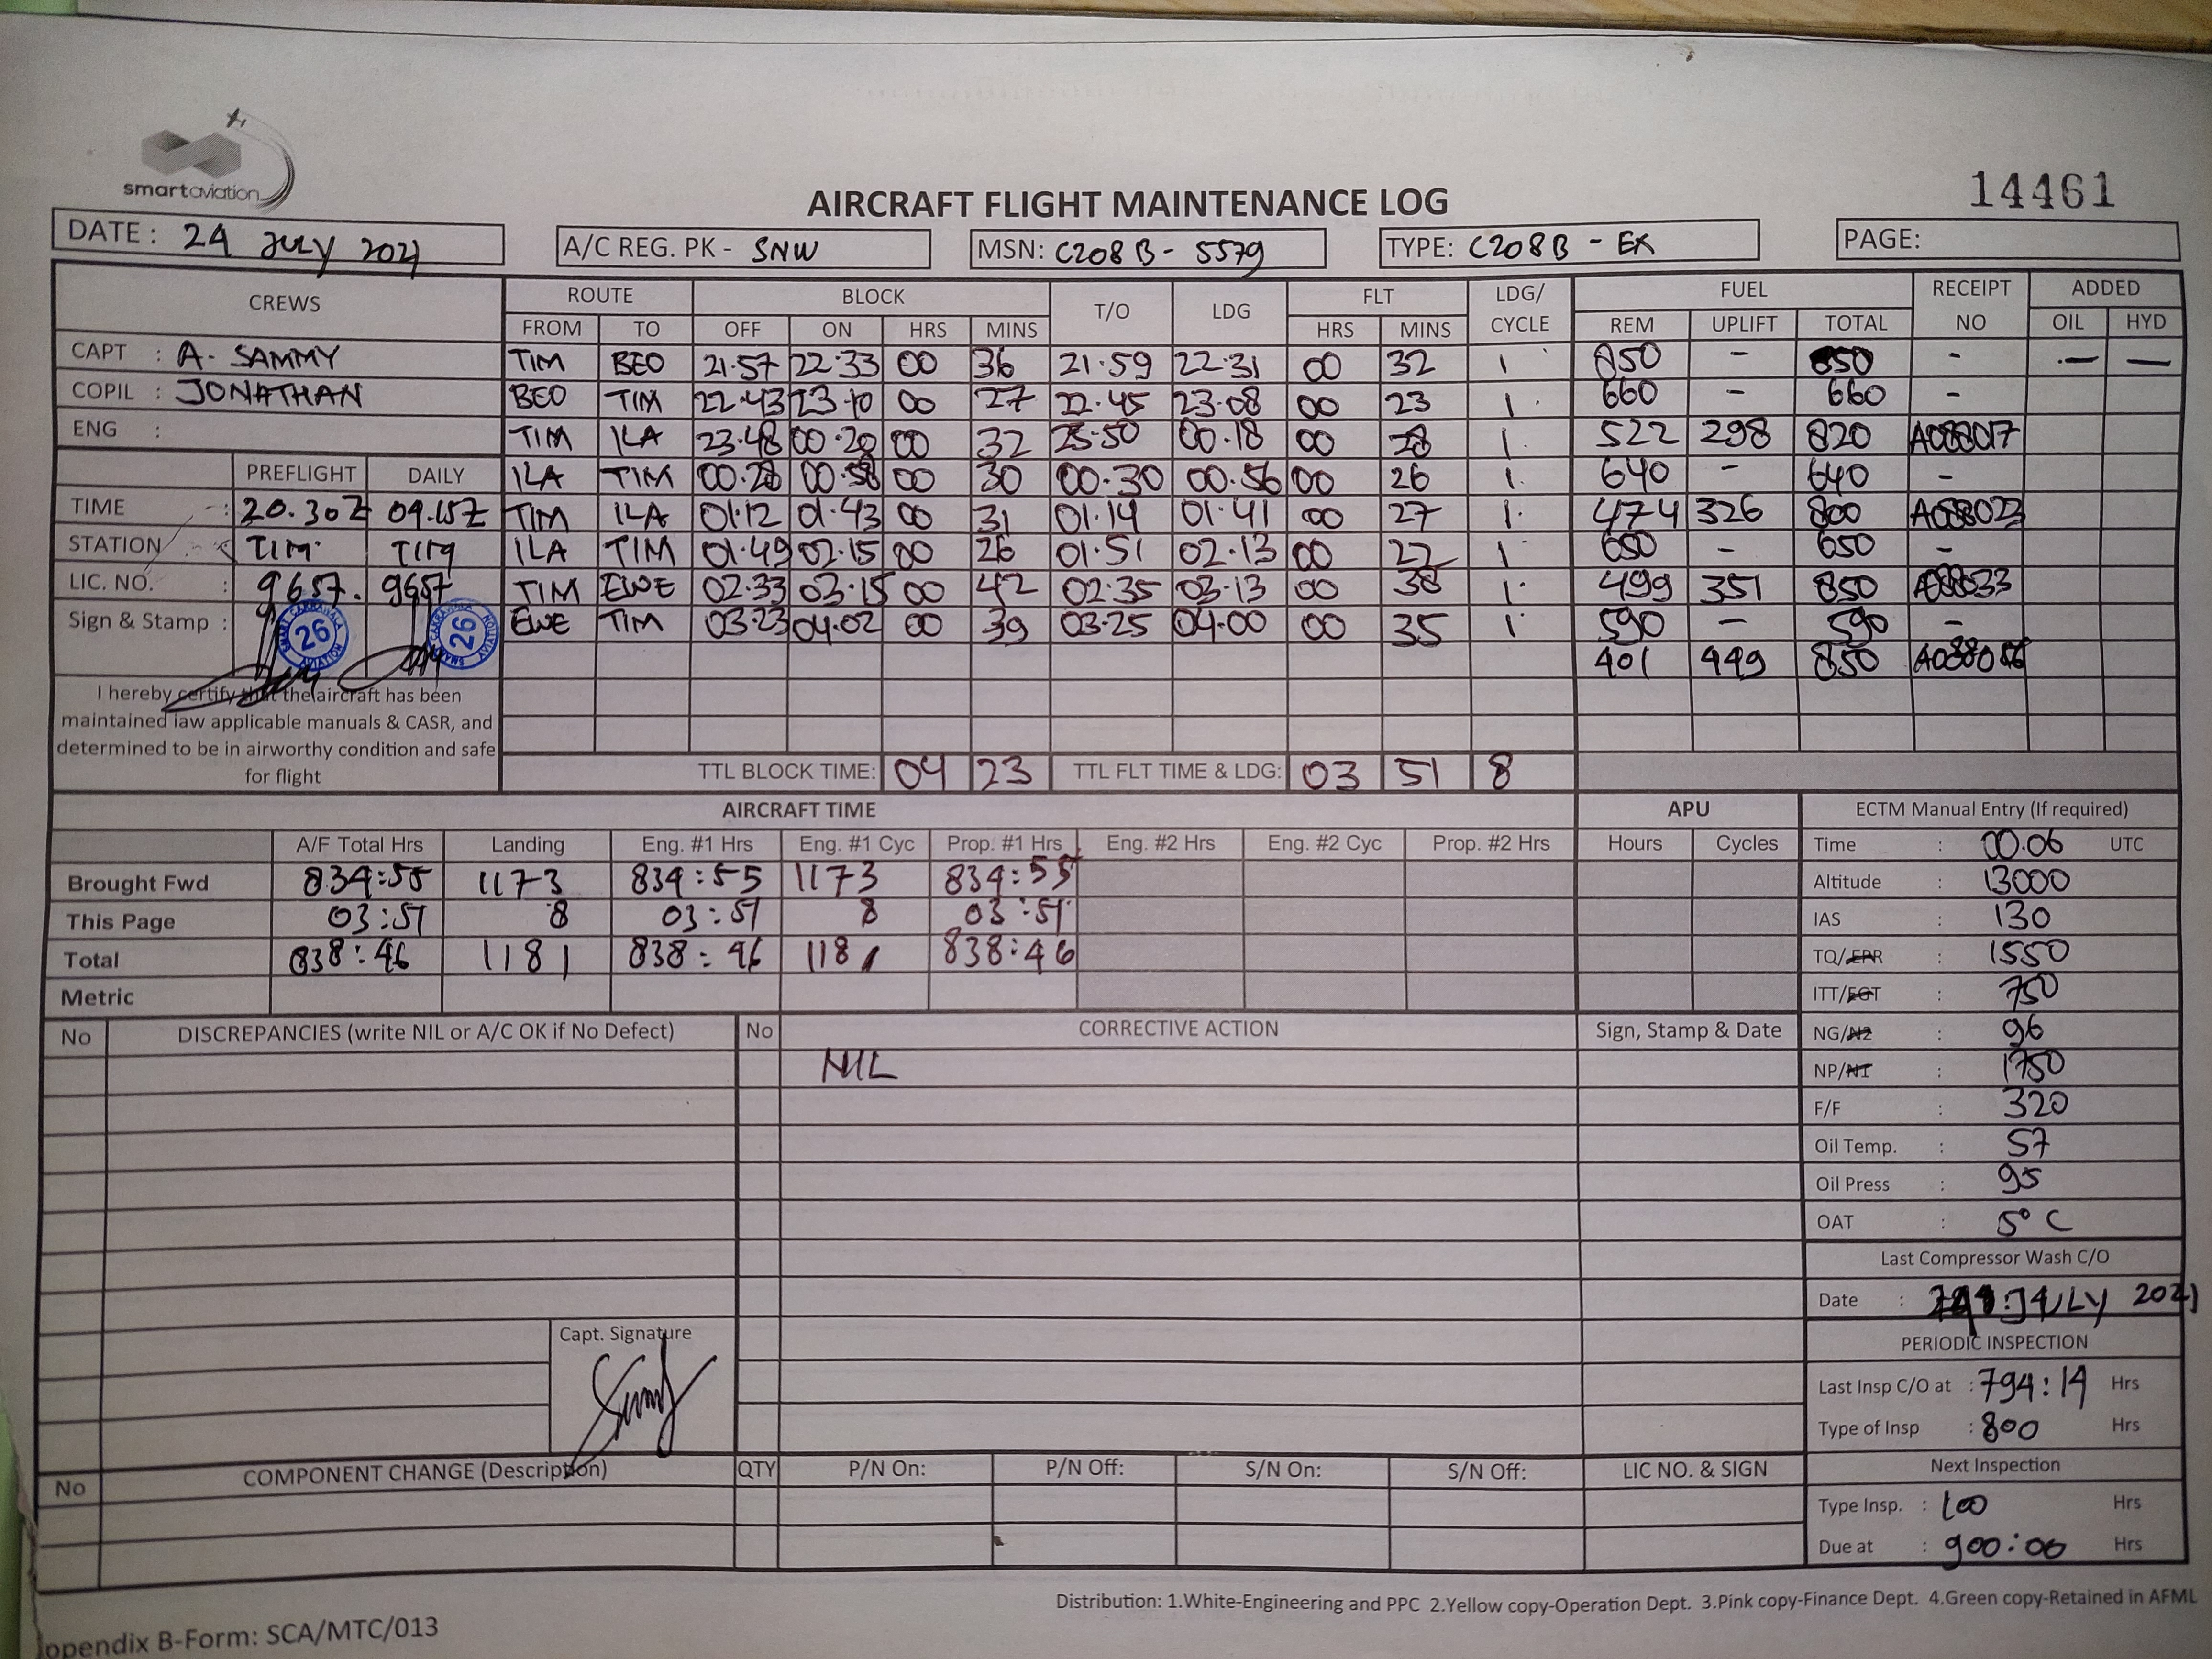 smartaviation
14461
AIRCRAFT FLIGHT MAINTENANCE LOG
DATE : 24 JULY 2021
A/C REG. PK - SNW
MSN: C208B - 5579
TYPE: C208B - EX
PAGE:
CREWS ROUTE BLOCK T/O LDG FLT LDG/ CYCLE FUEL RECEIPT NO ADDED
FROM TO OFF ON HRS MINS HRS MINS REM UPLIFT TOTAL OIL HYD
CAPT : A. SAMMY
COPIL : JONATHAN
ENG :
TIM BEO 21.57 22.33 00 36 21.59 22.31 00 32 1 850 - 850 - - -
BEO TIM 22.43 23.10 00 27 22.45 23.08 00 23 1 660 - 660 -
TIM ILA 23.48 00.20 00 32 23.50 00.18 00 28 1 522 298 820 A088017
ILA TIM 00.28 00.58 00 30 00.30 00.56 00 26 1 640 - 640 -
TIM ILA 01.12 01.43 00 31 01.14 01.41 00 27 1 474 326 800 A088023
ILA TIM 01.49 02.15 00 26 01.51 02.13 00 22 1 650 - 650 -
TIM EWE 02.33 03.15 00 42 02.35 03.13 00 38 1 499 351 850 A088033
EWE TIM 03.23 04.02 00 39 03.25 04.00 00 35 1 590 - 590 -
401 449 850
PREFLIGHT DAILY
TIME : 20.30Z 09.15Z
STATION : TIM TIM
LIC. NO. : 9657. 9657
Sign & Stamp :
26
26
I hereby certify that the aircraft has been
maintained iaw applicable manuals & CASR, and
determined to be in airworthy condition and safe
for flight
TTL BLOCK TIME: 04 23 TTL FLT TIME & LDG: 03 51 8
AIRCRAFT TIME
A/F Total Hrs Landing Eng. #1 Hrs Eng. #1 Cyc Prop. #1 Hrs Eng. #2 Hrs Eng. #2 Cyc Prop. #2 Hrs
Brought Fwd 834:55 1173 834:55 1173 834:55
This Page 03:51 8 03:51 8 03:51
Total 838:46 1181 838:46 1181 838:46
Metric
APU
Hours Cycles
ECTM Manual Entry (If required)
Time : 00.06 UTC
Altitude : 13000
IAS : 130
TQ/EPR : 1550
ITT/EGT : 750
NG/N2 : 96
NP/N1 : 1750
F/F : 320
Oil Temp. : 57
Oil Press : 95
OAT : 5° C
Last Compressor Wash C/O
Date : JULY 2021
PERIODIC INSPECTION
Last Insp C/O at : 794:19 Hrs
Type of Insp : 800 Hrs
Next Inspection
Type Insp. : 100 Hrs
Due at : 900:00 Hrs
No DISCREPANCIES (write NIL or A/C OK if No Defect) No CORRECTIVE ACTION Sign, Stamp & Date
NIL
Capt. Signature
No COMPONENT CHANGE (Description) QTY P/N On: P/N Off: S/N On: S/N Off: LIC NO. & SIGN
Distribution: 1.White-Engineering and PPC 2.Yellow copy-Operation Dept. 3.Pink copy-Finance Dept. 4.Green copy-Retained in AFML
ppendix B-Form: SCA/MTC/013